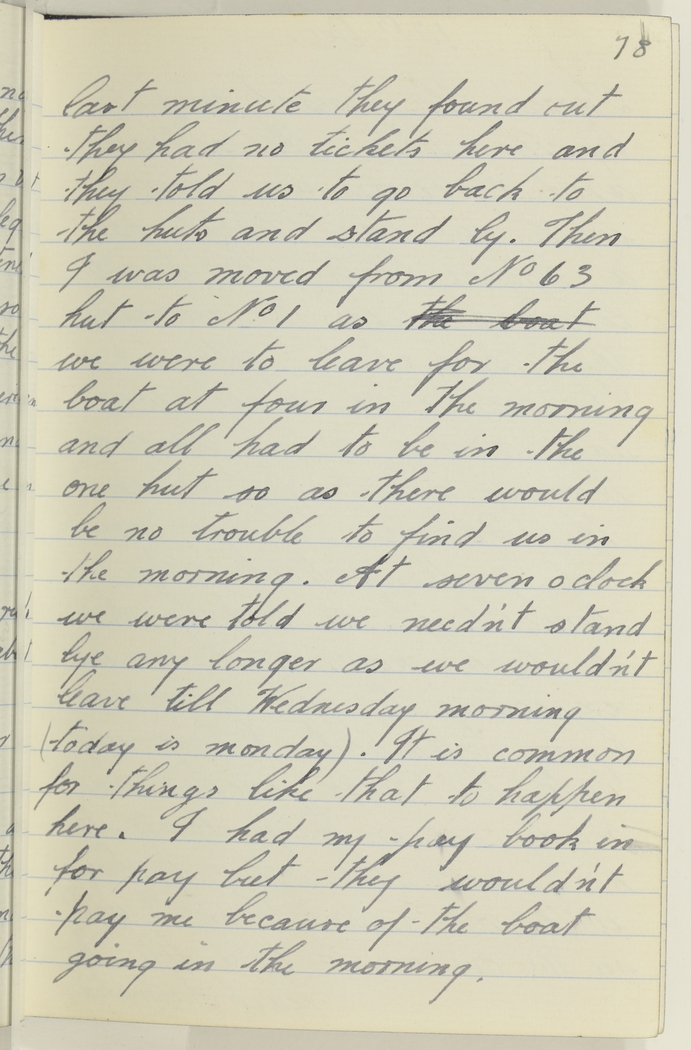 78
last minute they found out
they had no tickets here and
they told us to go back to
the huts and stand by. Then
I was moved from No 63
hut to No 1 as the boat
we were to leave for the
boat at four in the morning
and all had to be in the
one hut so as there would
be no trouble to find us in
the morning. At seven oclock
we were told we needn't stand
bye any longer as we wouldn't
leave till Wednesday morning
(today is monday). It is common
for things like that to happen
here. I had my pay book in
for pay but they wouldn't
pay me because of the boat
going in the morning.